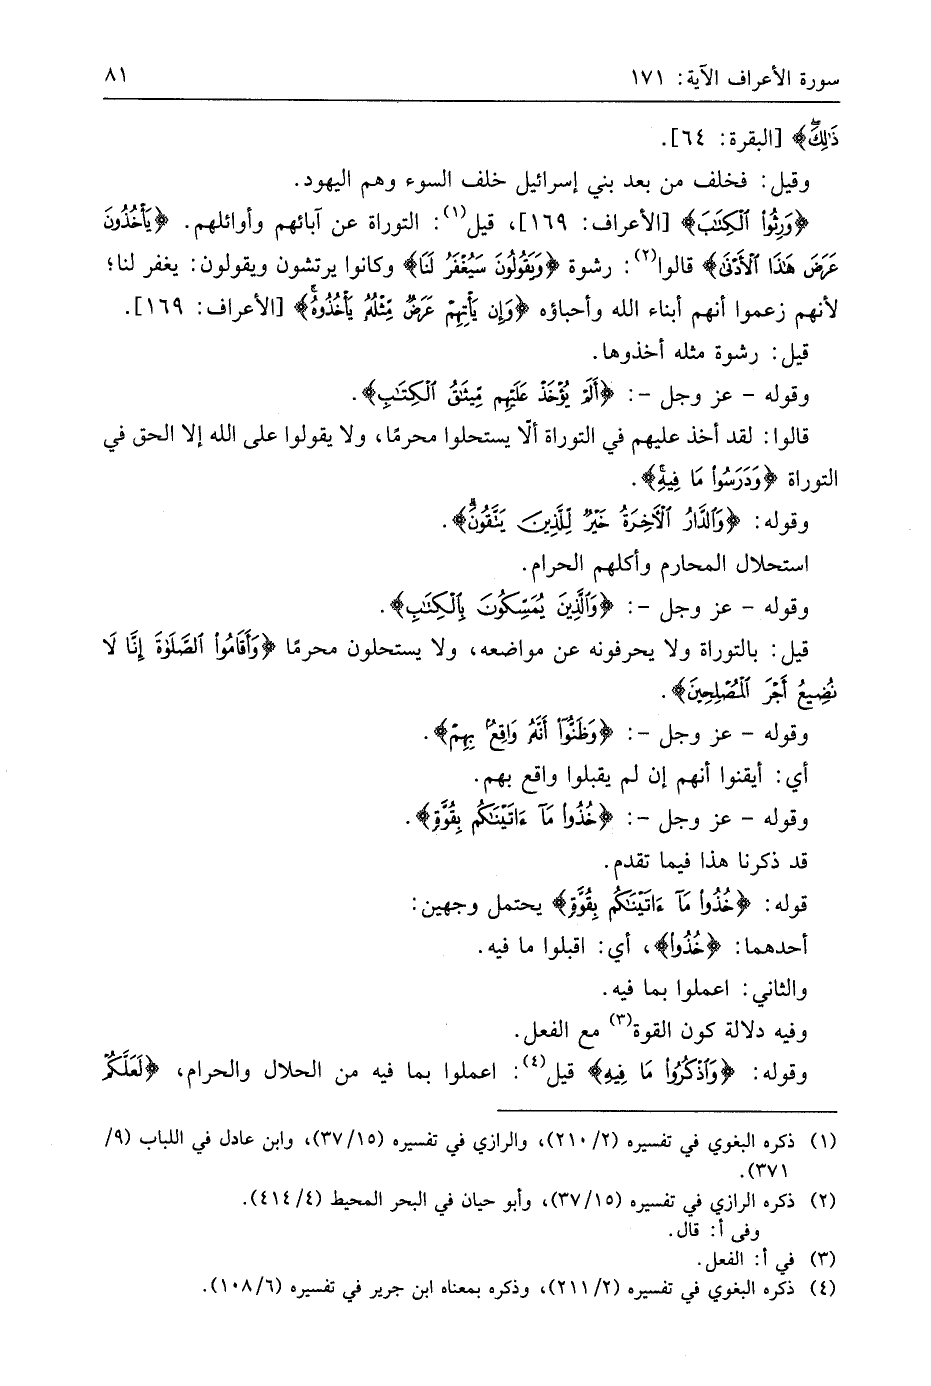 سورة الأعراف الآية: ١٧١ ٨١
ذَٰلِكَۖ﴾ [البقرة: ٦٤].
وقيل: فخلف من بعد بني إسرائيل خلف السوء وهم اليهود.
﴿وَرِثُواْ ٱلۡكِتَٰبَ﴾ [الأعراف: ١٦٩]، قيل(١): التوراة عن آبائهم وأوائلهم. ﴿يَأۡخُذُونَ
عَرَضَ هَٰذَا ٱلۡأَدۡنَىٰ﴾ قالوا(٢): رشوة ﴿وَيَقُولُونَ سَيُغۡفَرُ لَنَا﴾ وكانوا يرتشون ويقولون: يغفر لنا؛
لأنهم زعموا أنهم أبناء الله وأحباؤه ﴿وَإِن يَأۡتِهِمۡ عَرَضٞ مِّثۡلُهُۥ يَأۡخُذُوهُۚ﴾ [الأعراف: ١٦٩].
قيل: رشوة مثله أخذوها.
وقوله - عز وجل -: ﴿أَلَمۡ يُؤۡخَذۡ عَلَيۡهِم مِّيثَٰقُ ٱلۡكِتَٰبِ﴾.
قالوا: لقد أخذ عليهم في التوراة ألّا يستحلوا محرمًا، ولا يقولوا على الله إلا الحق في
التوراة ﴿وَدَرَسُواْ مَا فِيهِۗ﴾.
وقوله: ﴿وَٱلدَّارُ ٱلۡأٓخِرَةُ خَيۡرٞ لِّلَّذِينَ يَتَّقُونَۗ﴾.
استحلال المحارم وأكلهم الحرام.
وقوله - عز وجل -: ﴿وَٱلَّذِينَ يُمَسِّكُونَ بِٱلۡكِتَٰبِ﴾.
قيل: بالتوراة ولا يحرفونه عن مواضعه، ولا يستحلون محرمًا ﴿وَأَقَامُواْ ٱلصَّلَوٰةَ إِنَّا لَا
نُضِيعُ أَجۡرَ ٱلۡمُصۡلِحِينَ﴾.
وقوله - عز وجل -: ﴿وَظَنُّوٓاْ أَنَّهُۥ وَاقِعُۢ بِهِمۡ﴾.
أي: أيقنوا أنهم إن لم يقبلوا واقع بهم.
وقوله - عز وجل -: ﴿خُذُواْ مَآ ءَاتَيۡنَٰكُم بِقُوَّةٖ﴾.
قد ذكرنا هذا فيما تقدم.
قوله: ﴿خُذُواْ مَآ ءَاتَيۡنَٰكُم بِقُوَّةٖ﴾ يحتمل وجهين:
أحدهما: ﴿خُذُواْ﴾، أي: اقبلوا ما فيه.
والثاني: اعملوا بما فيه.
وفيه دلالة كون القوة(٣) مع الفعل.
وقوله: ﴿وَٱذۡكُرُواْ مَا فِيهِ﴾ قيل(٤): اعملوا بما فيه من الحلال والحرام، ﴿لَعَلَّكُمۡ
(١) ذكره البغوي في تفسيره (٢/ ٢١٠)، والرازي في تفسيره (١٥/ ٣٧)، وابن عادل في اللباب (٩/
٣٧١).
(٢) ذكره الرازي في تفسيره (١٥/ ٣٧)، وأبو حيان في البحر المحيط (٤/ ٤١٤).
وفى أ: قال.
(٣) في أ: الفعل.
(٤) ذكره البغوي في تفسيره (٢/ ٢١١)، وذكره بمعناه ابن جرير في تفسيره (٦/ ١٠٨).